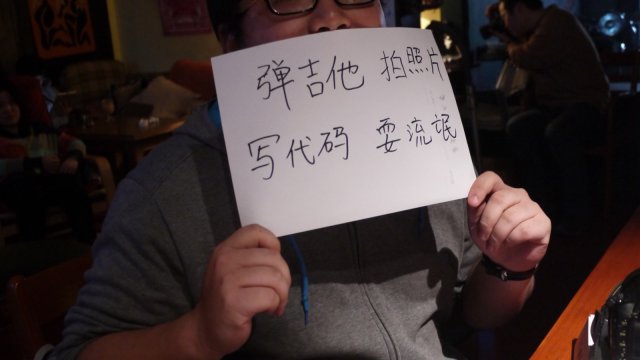 弹吉他 拍照片
写代码 耍流氓